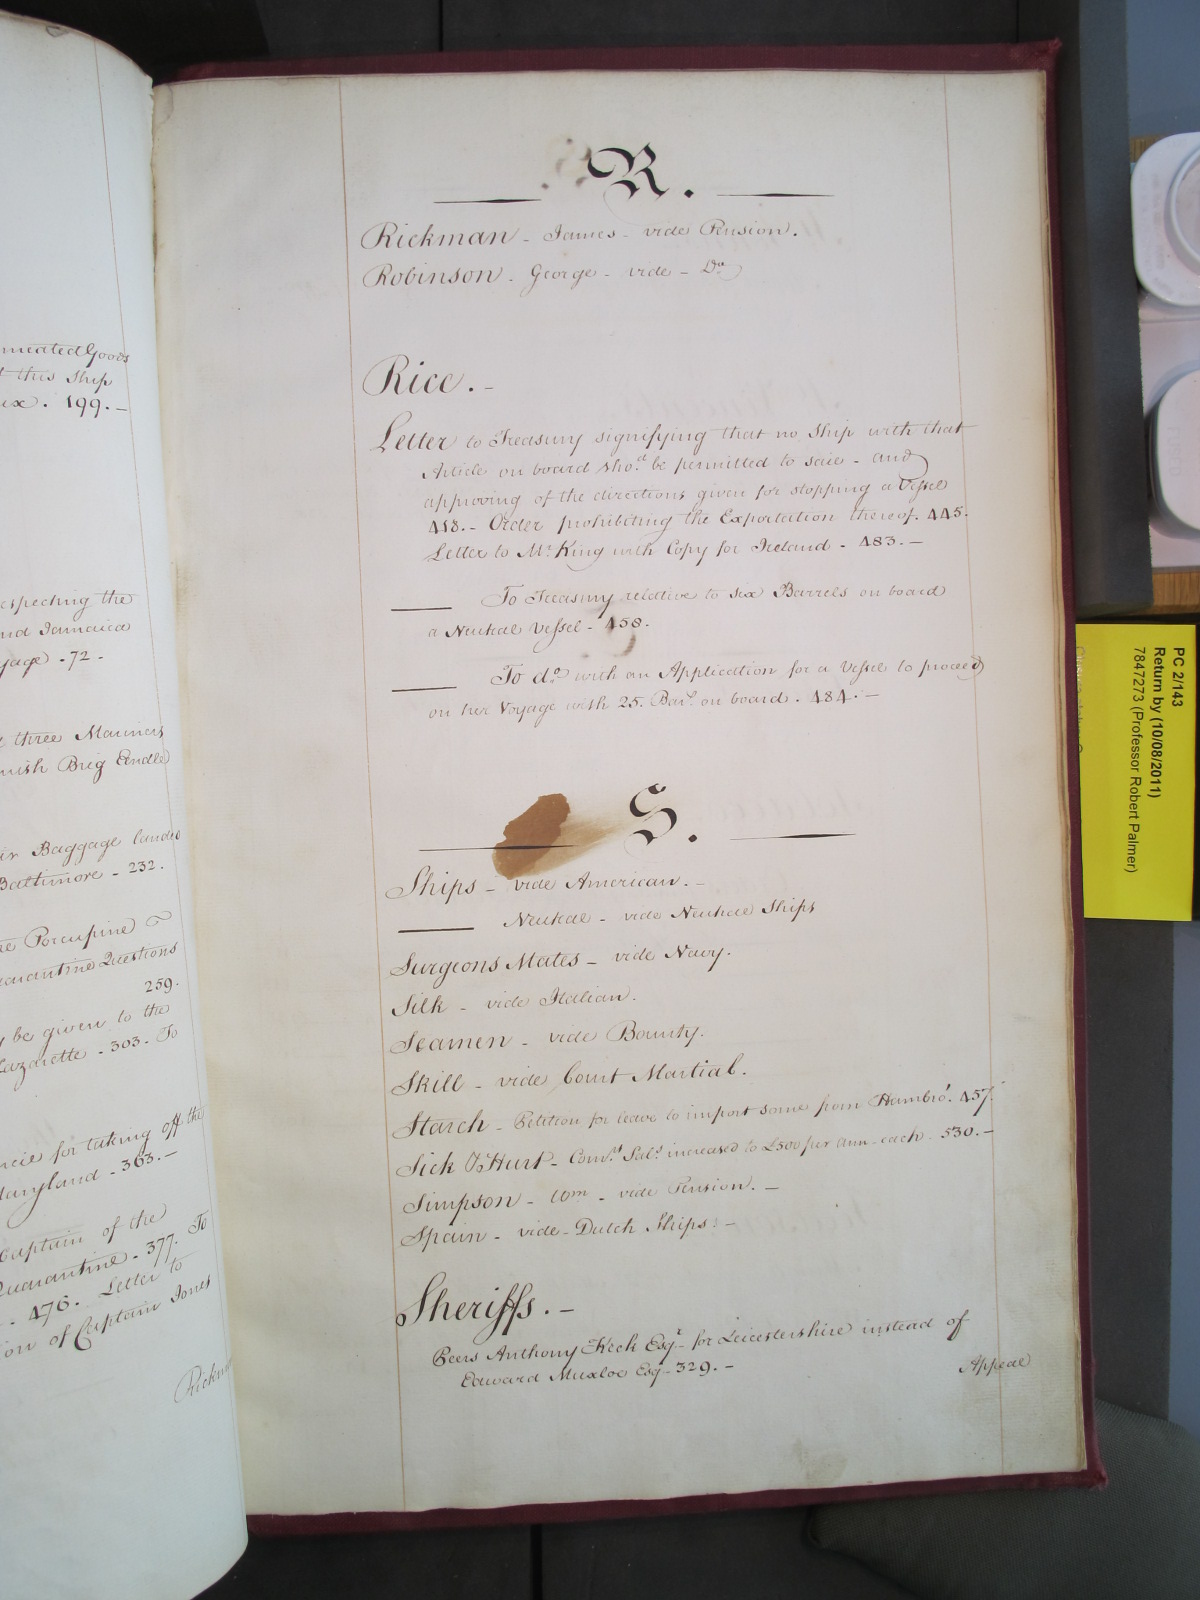 Goods
this Ship
199.-
the
and Jamaica
72-
three Mariners
Brig
Baggage
Baltimore - 232.
Porcupine
Quarantine Questions
259.
be given to the
303 - To
for taking off the
Maryland - 363.-
Captain of the
Quarantine - 377. To
476. Letter to
on of Captain Jones
R.
Rickman - James - vide Pension.
Robinson - George - vide - Do
Rice. -
Letter to Treasury signifying that no Ship with that
Article on board sho.d be permitted to sail - and
approving of the directions given for stopping a Vessel
418.- Order prohibiting the Exportation thereof. 445.
Letter to Mr. King with Copy for Ireland - 483.-
To Treasury relative to six Barrels on board
a Neutral Vessel - 458.
To do. with an Application for a Vessel to proceed
on her Voyage with 25. Barl. on board. 484.-
S.
Ships - vide American. -
Neutral - vide Neutral Ships
Surgeons Mates - vide Navy.
Silk - vide Italian.
Seamen - vide Bounty.
Skill - vide Court Martial.
Starch - Petition for leave to import some from Hambro'. 457.
Sick & Hurt - Comrs. Sals. increased to £500 per ann - each. 530.-
Simpson - Wm - vide Pension. -
Spain - vide Dutch Ships. -
Sheriffs. -
Peers Anthony Keck Esqr. for Leicestershire instead of
Edward Muxloe Esq - 329. -
Appeal
PC 2/143
Return by (10/08/2011)
7847273 (Professor Robert Palmer)